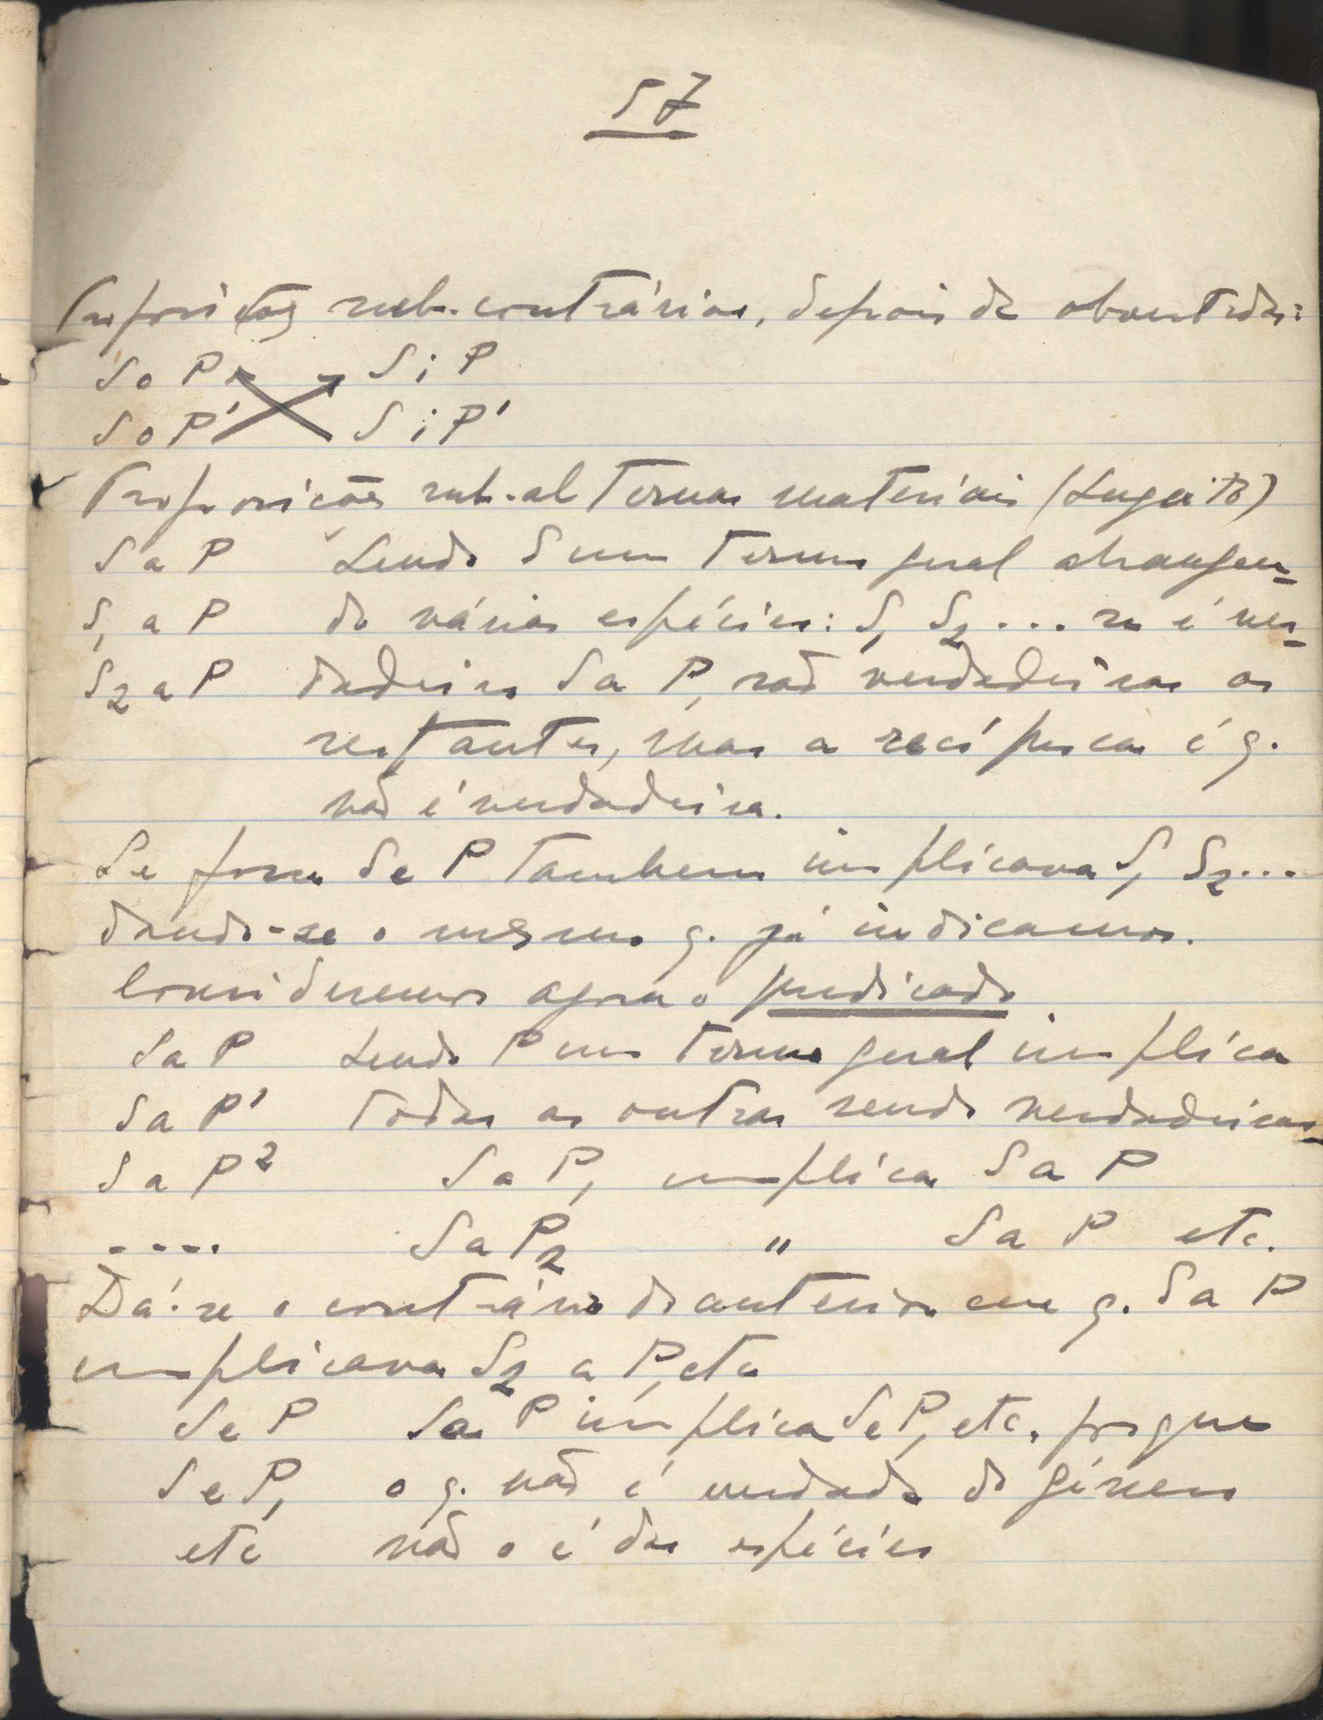 57
Proposições sub-contrárias, depois de obvertidas:
S o P S i P
S o P' S i P'
Proposições sub-alternas materiais (Sugeito)
S a P Sendo S um termo geral abrangen-
S₁ a P do várias espécies: S₁ S₂ ... se é ver-
S₂ a P dadeira S a P, são verdadeiras as
restantes, mas a recíproca é q.
não é verdadeira.
Se fora S e P tambem implicava S₁ S₂ ...
dando-se o mesmo q. já indicamos.
Consideremos agora o predicado
S a P Sendo P um termo geral implica
S a P' todas as outras sendo verdadeiras
S a P² S a P₁ implica S a P
.... S a P₂ " S a P etc.
Dá-se o contrário do anterior em q. S a P
implicava S₂ a P, etc
S e P Sa P implica S e P, etc. porque
S e P₁ o q. não é verdade do género
etc não o é das espécies